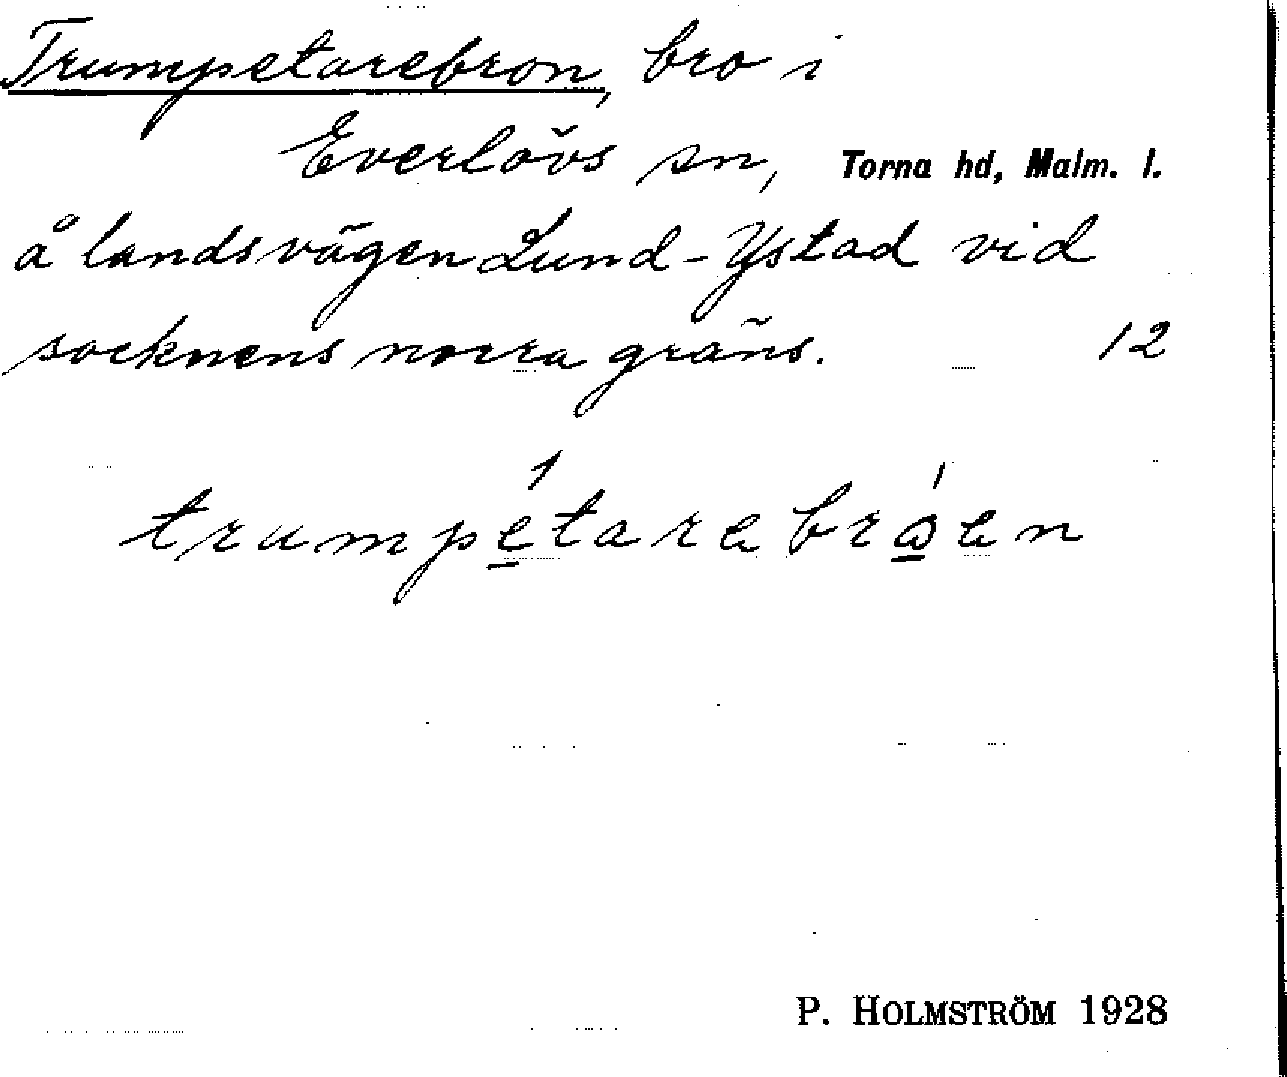 Trumpetarebron, bro i
Everlövs sn, Torna hd, Malm. l.
å landsvägen Lund-Ystad vid
socknens norra gräns. 12
trumpetarebroen
P. HOLMSTRÖM 1928